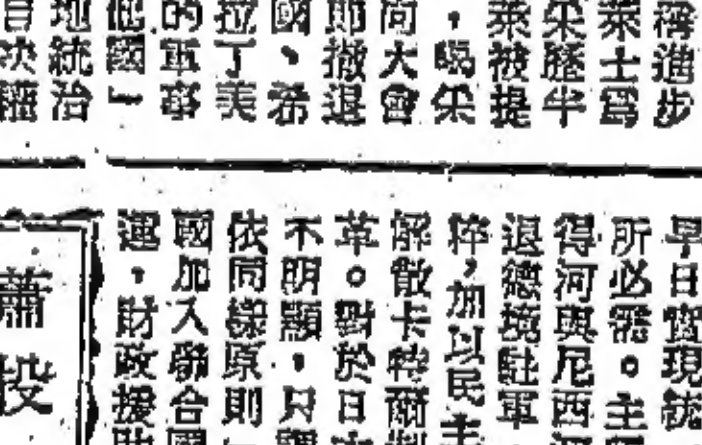 稱進步
萊士爲
朵歷半
萊被提
，喝朵
向大會
耶撤退
國、希
拉丁美
的軍事
低國」
地統治
自決權
早日實現統
所必需。主
得河與尼西
退德境駐軍
粹，加以民主
解散卡特爾制
革。對於日本
不明顯，只
依同樣原則
國加入聯合國
運，財政援助
蕭
投